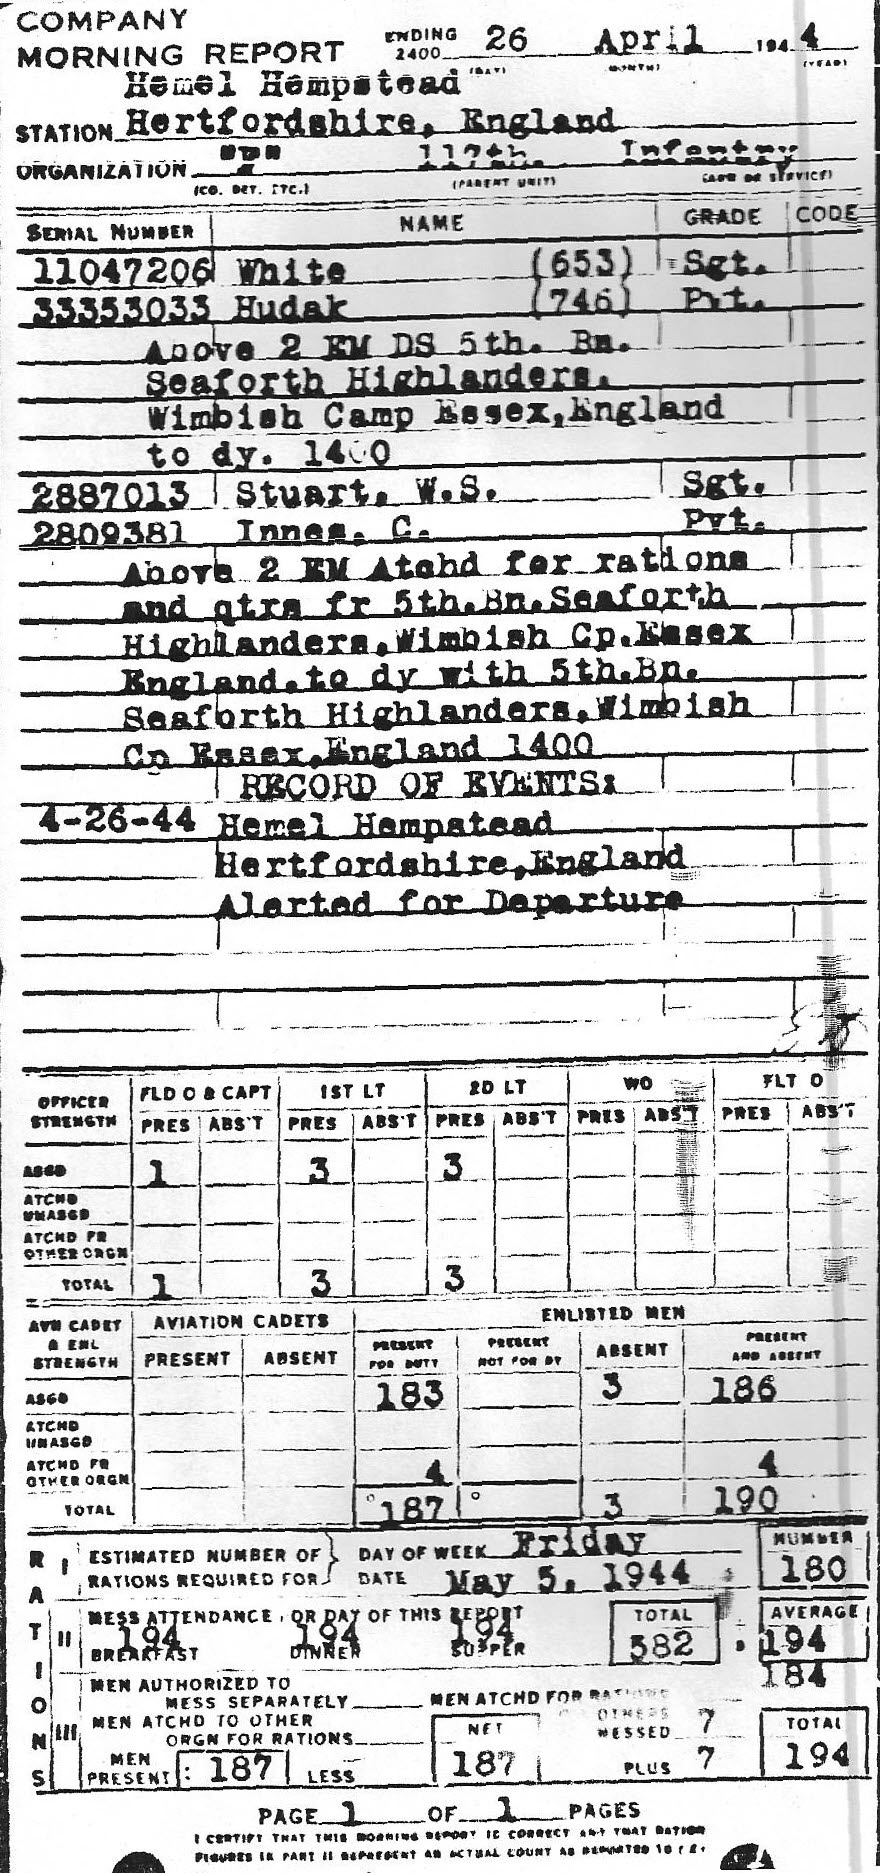 COMPANY
MORNING REPORT ENDING 2400 26 April 1944
(DAY) (MONTH) (YEAR)
Hemel Hempstead
STATION Hertfordshire, England
ORGANIZATION "F" 117th. Infantry
(CO. DET. ETC.) (PARENT UNIT) (ARM OR SERVICE)
SERIAL NUMBER NAME GRADE CODE
11047206 White (653) Sgt.
33353033 Hudak (746) Pvt.
Above 2 EM DS 5th. Bn.
Seaforth Highlanders.
Wimbish Camp Essex,England
to dy. 1400
2887013 Stuart, W.S. Sgt.
2809381 Innes, C. Pvt.
Above 2 EM Atchd for rations
and qtrs fr 5th.Bn.Seaforth
Highlanders,Wimbish Cp.Essex
England.to dy with 5th.Bn.
Seaforth Highlanders,Wimbish
Cp Essex,England 1400
RECORD OF EVENTS:
4-26-44 Hemel Hempstead
Hertfordshire,England
Alerted for Departure
OFFICER STRENGTH FLD O & CAPT 1ST LT 2D LT WO FLT O
PRES ABS'T PRES ABS'T PRES ABS'T PRES ABS'T PRES ABS'T
ASGD 1 3 3
ATCHD UNASGD
ATCHD FR OTHER ORGN
TOTAL 1 3 3
AVN CADET & ENL STRENGTH AVIATION CADETS ENLISTED MEN
PRESENT ABSENT PRESENT FOR DUTY PRESENT NOT FOR DY ABSENT PRESENT AND ABSENT
ASGD 183 3 186
ATCHD UNASGD
ATCHD FR OTHER ORGN 4 4
TOTAL 187 3 190
RATIONS
I ESTIMATED NUMBER OF RATIONS REQUIRED FOR DAY OF WEEK Friday NUMBER
DATE May 5, 1944 180
II MESS ATTENDANCE, OR DAY OF THIS REPORT TOTAL AVERAGE
194 194 194 582 194
BREAKFAST DINNER SUPPER
184
III MEN AUTHORIZED TO MESS SEPARATELY MEN ATCHD FOR RATIONS
MEN ATCHD TO OTHER ORGN FOR RATIONS NET OTHERS MESSED 7 TOTAL
MEN PRESENT: 187 LESS 187 PLUS 7 194
PAGE 1 OF 1 PAGES
I CERTIFY THAT THIS MORNING REPORT IS CORRECT AND THAT RATION
FIGURES IN PART II REPRESENT AN ACTUAL COUNT AS REPORTED TO